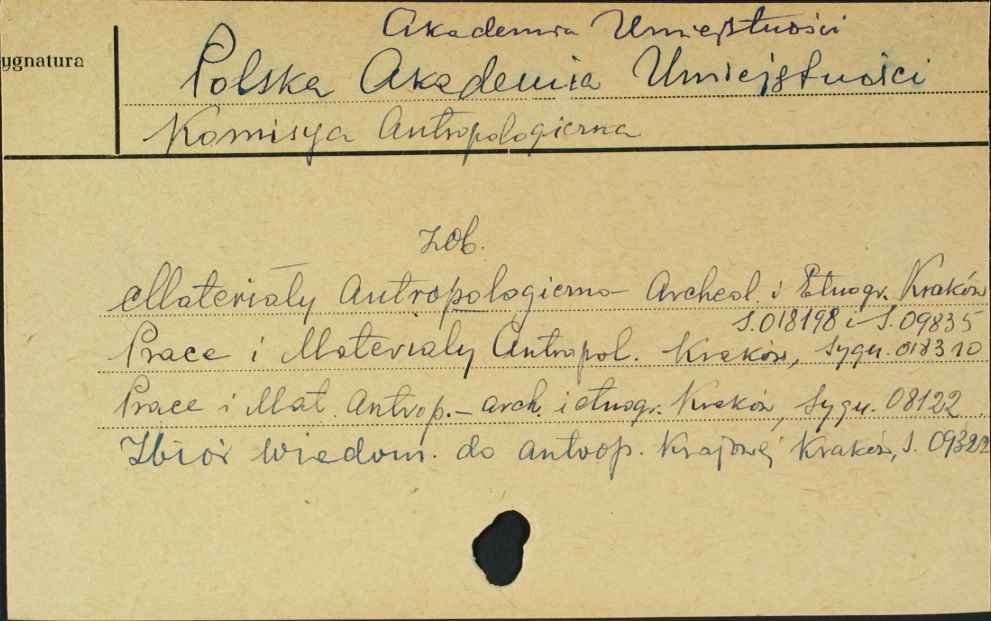 Akademia Umiejętności
ygnatura
Polska Akademia Umiejętności
Komisya Antropologiczna
zob.
Materiały Antropologiczno- Archeol. i Etnogr. Kraków
S.018198 i S.09835
Prace i Materiały Antropol. Kraków, sygn. 018310
Prace i Mat. Antrop.- arch. i etnogr. Kraków, sygn. 08122
Zbiór wiadom. do antrop. Krajowej Kraków, S. 09322